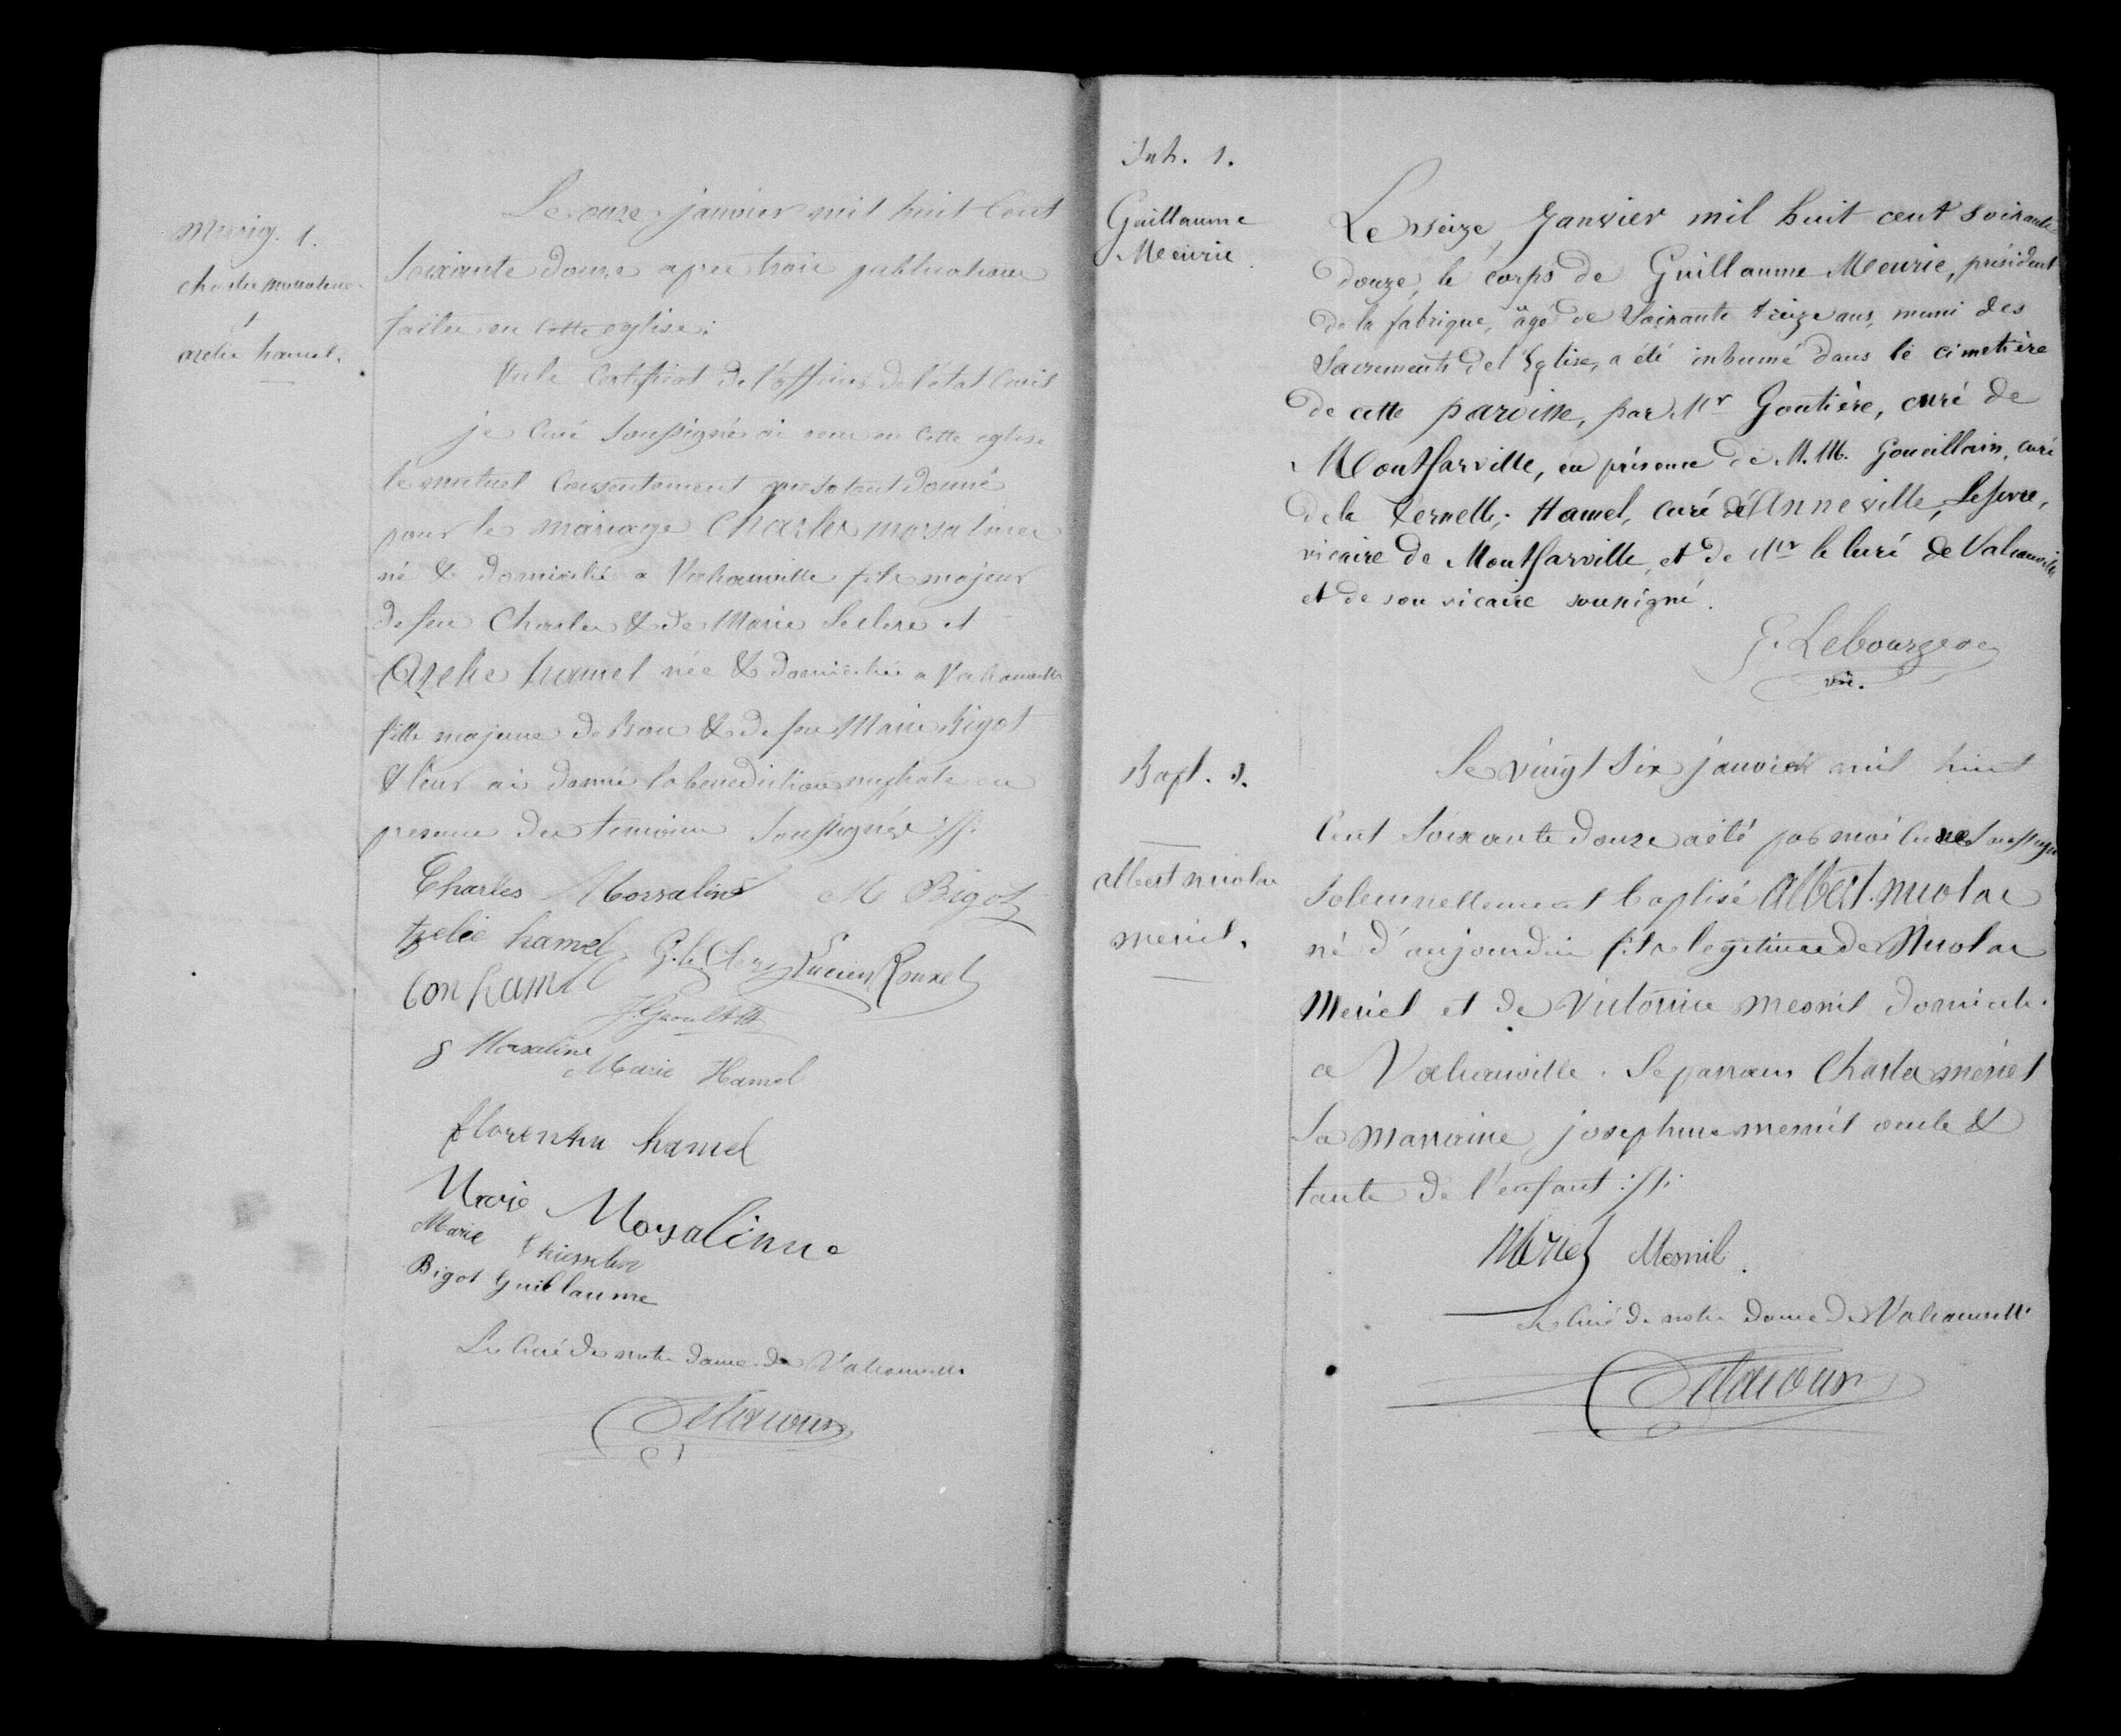 Mariag. 1.
Charles morsaline
&
azelie hamel.
Le onze janvier mil huit Cent
soixante douze apres trois publications
faites en cette eglise;
Vu le Certificat de l'officier de l'état Civil
je Curé soussigné ai recu en cette eglise
le mutuel Consentement que se sont donné
pour le mariage Charles morsaline
né & domicilié a Valcanville fils majeur
de feu Charles & de Marie Leclerc et
Azelie hamel née & domiciliée a Valcanville
fille majeure de Bon & de feu Marie Bigot
& leur ai donné la benediction nuptiale en
presence des temoins Soussignés ://:
Charles Morsaline M Bigot
Azelie hamel G. le Clerc Lucien Rouxel
bon hamel
Morsaline Marie Hamel
florentin hamel
Marie Morsalinne
Marie
Bigot Guillaume
Le Curé de notre dame de Valcanville
Delacour
Inh. 1.
Guillaume
Meurie.
Le seize, Janvier mil huit cent soixante
douze, le corps de Guillaume Meurie, président
de la fabrique, âgé de soixante treize ans, muni des
Sacrements de l'Eglise, a été inhumé dans le cimetière
de cette paroisse, par Mr Goutière, curé de
Montfarville, en présence de M.M. Gouillain, curé
de la Pernelle; Hamel, curé d'Anneville, Lefevre,
vicaire de Montfarville, et de Mr le Curé de Valcanville
et de son vicaire soussigné.
G. Lebourgeois
vic.
Bapt. 1.
albert nicolas
meriel.
Le vingt six janvier mil huit
Cent Soixante douze a été par moi Curé Soussigné
Solennellement baptisé albert. nicolas
né d'aujourdui fils legitime de Nicolas
Meriel et de Victorine mesnil domiciliés
a Valcanville. Le parrain Charles meriel
La marraine josephine mesnil oncle &
tante de l'enfant ://:
Meriel Mesnil.
Le Curé de notre dame de Valcanville
Delacour